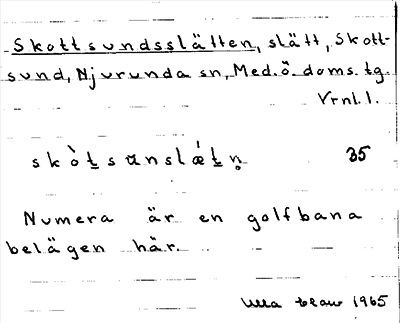 Skottsundsslätten, slätt, Skott-
sund, Njurunda sn, Med.ö. doms. tg.
Vrnl. 1.
skò̱tsɯnslǽ̱tn̥ 35
Numera är en golfbana
belägen här.
Ulla 1965